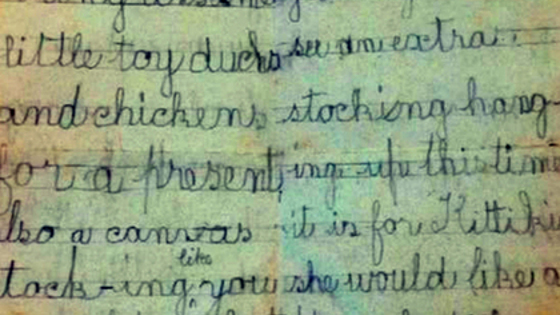 little toy ducks
and chickens
for a present,
lso a canvas
like
tock-ing you
see an extra
stocking hang
ing up this time
it is for Kittiki
she would like a